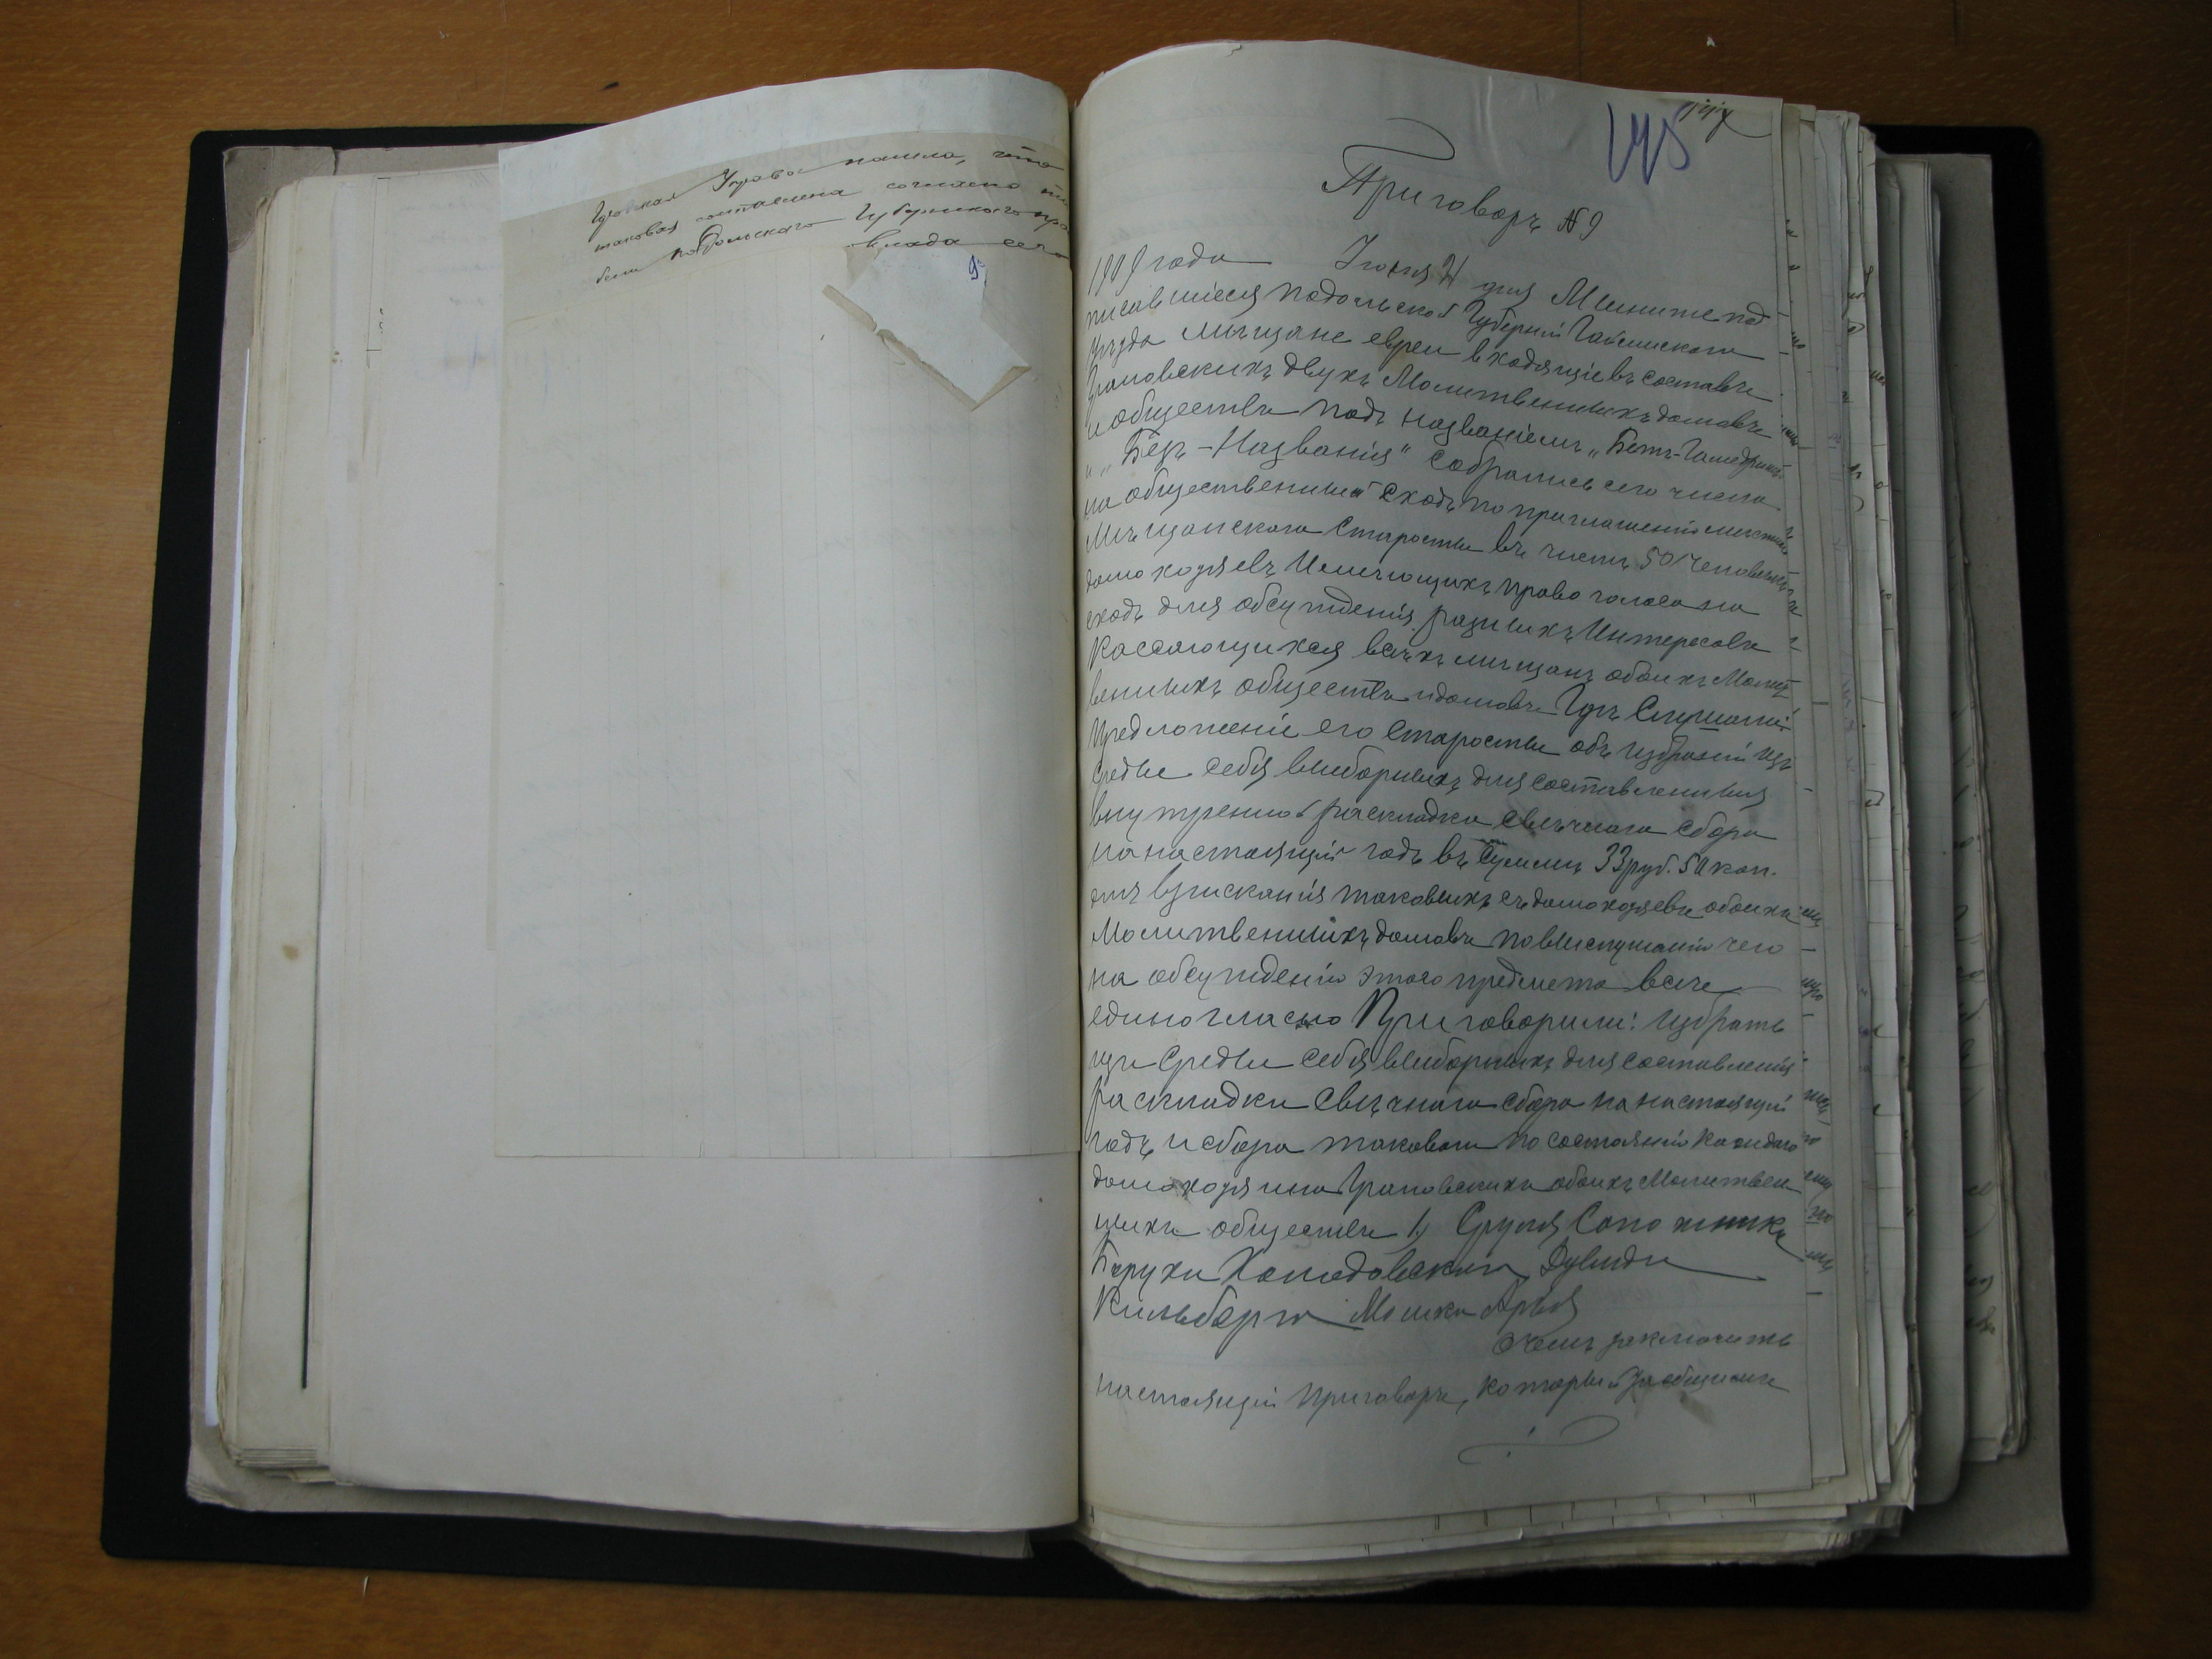 Управа нашла, что
таковая составлена согласно
Подольскаго Губернскаго
9
195
Приговоръ № 9
1909 года Іюня дня Мы ниже под
писавшіеся Подольской Губерніи Гайсинскаго
уѣзда мѣщане евреи входящіе въ составъ
Грановскихъ двухъ Молитвенныхъ домовъ
и обществъ подъ названіемъ „Бетъ-Гамедрашъ
„Безъ-Названія" собрались сего числа
на общественный сходъ по приглашенію мѣстнаго
Мѣщанскаго Старосты въ числѣ 50 человѣкъ
домохозяевъ Имеющихъ право голоса на
сходъ для обсужденія разныхъ Интересовъ
Кассающихся всѣхъ мѣщанъ обоихъ Молит
венныхъ обществъ и домовъ Гдѣ Слушали:
Предложеніе его Старосты объ избраніи изъ
среды себя выборныхъ для составленныя
внутренной раскладки свѣчнаго сбора
на настоящій годъ въ Суммѣ 33 руб. 50 коп.
для взысканія таковыхъ съ домохозяевъ обоихъ
Молитвенныхъ домовъ по выслушаніи чего
на обсужденію этого предмета всѣ
единогласно Приговорили: избрать
изъ среды себя выборныхъ для составленія
раскладки Свѣчнаго сбора на настоящій
годъ и сбора таковаго по состоянію каждаго
домохозяина Грановскихъ обоихъ Молитвен
ныхъ обществъ 1) Сруля Сапожника
Баруха Холодовскаго, Дувида
Кильберга Мошка Арья
Чемъ заключить
настоящій Приговоръ, который за общимъ